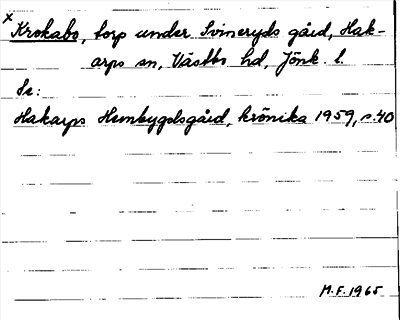 x Krokabo, torp under Svineryds gård, Hak-
arps sn, Västbo hd, Jönk. l.
Se:
Hakarps Hembygdsgård, krönika 1959, s. 40
M.F. 1965